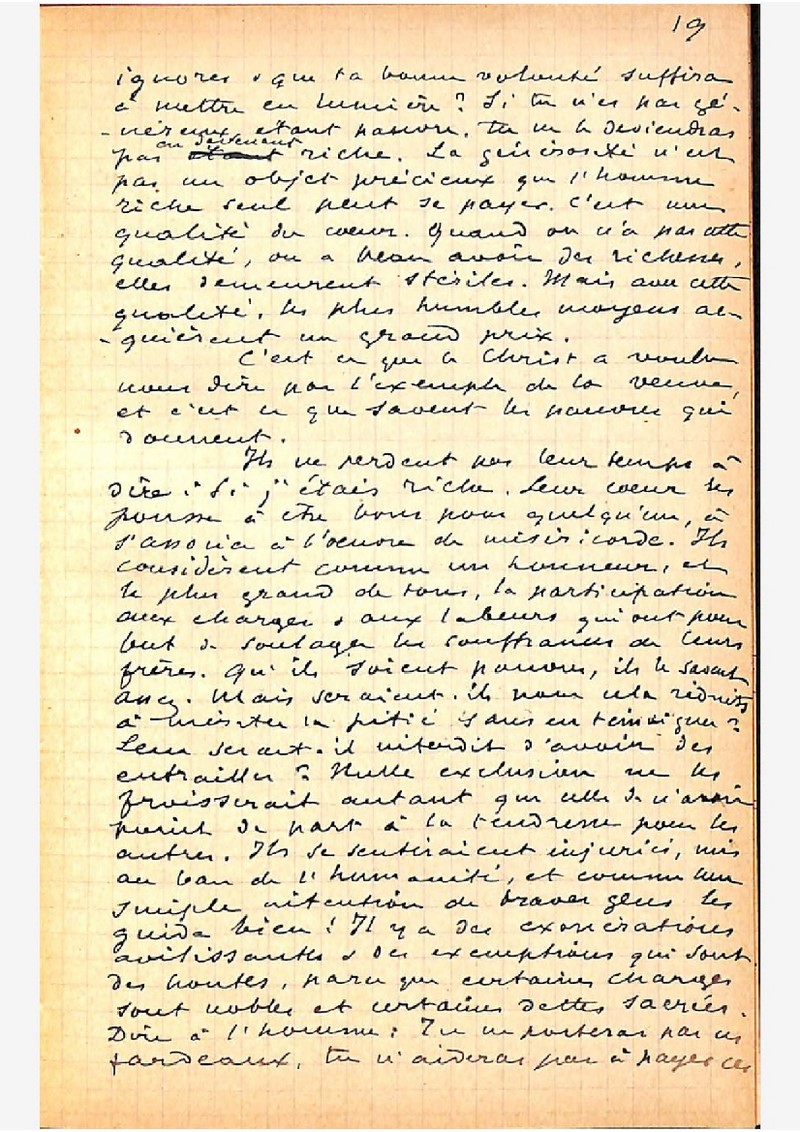 19
ignores & que ta bonne volonté suffira
à mettre en lumière ? Si tu n'es pas gé-
-néreux étant pauvre, tu ne le deviendras
pas en devenant riche. La générosité n'est
pas un objet précieux que l'homme
riche seul peut se payer. C'est une
qualité du cœur. Quand on n'a pas cette
qualité, on a beau avoir des richesses,
elles demeurent stériles. Mais avec cette
qualité, les plus humbles moyens ac-
-quièrent un grand prix.
C'est ce que le Christ a voulu
nous dire par l'exemple de la veuve,
et c'est ce que savent les pauvres qui
donnent.
Ils ne perdent pas leur temps à
dire : Si j'étais riche. Leur cœur les
pousse à être bons pour quelqu'un, à
s'associer à l'œuvre de miséricorde. Ils
considèrent comme un honneur, et
le plus grand de tous, la participation
aux charges & aux labeurs qui ont pour
but de soulager les souffrances de leurs
frères. Qu'ils soient pauvres, ils le savent
assez. Mais seraient-ils pour cela réduits
à mériter la pitié sans en témoigner ?
Leur serait-il interdit d'avoir des
entrailles ? Nulle exclusion ne les
froisserait autant que celle de n'avoir
point de part à la tendresse pour les
autres. Ils se sentiraient injuriés, mis
au ban de l'humanité, et comme une
simple intention de braves gens les
guide bien ! Il y a des exonérations
avilissantes & des exemptions qui sont
des hontes, parce que certaines charges
sont nobles et certaines dettes sacrées.
Dire à l'homme : Tu ne porteras pas ces
fardeaux, tu n'aideras pas à payer ces